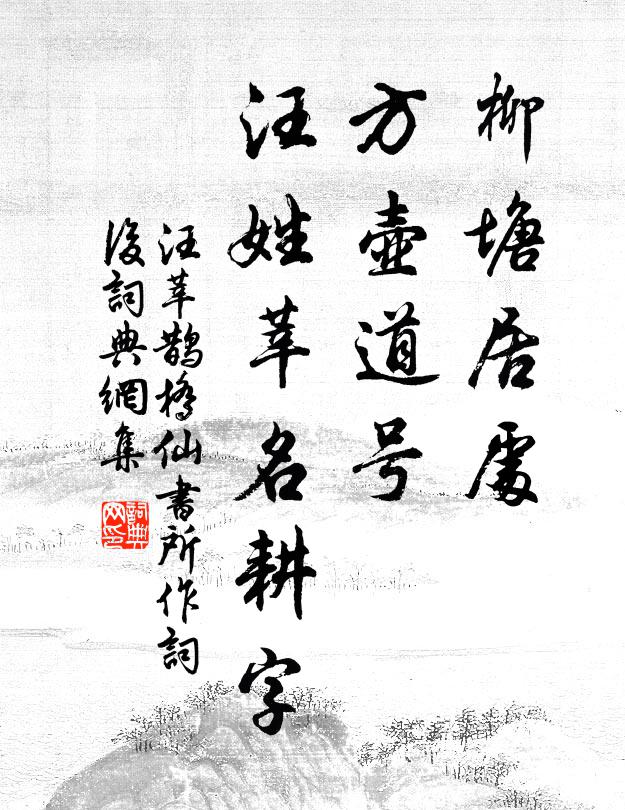 柳塘居處
方壺道号
汪姓莘名耕字
汪莘鵲橋仙書所作詞
後詞典網集
詞典
网印